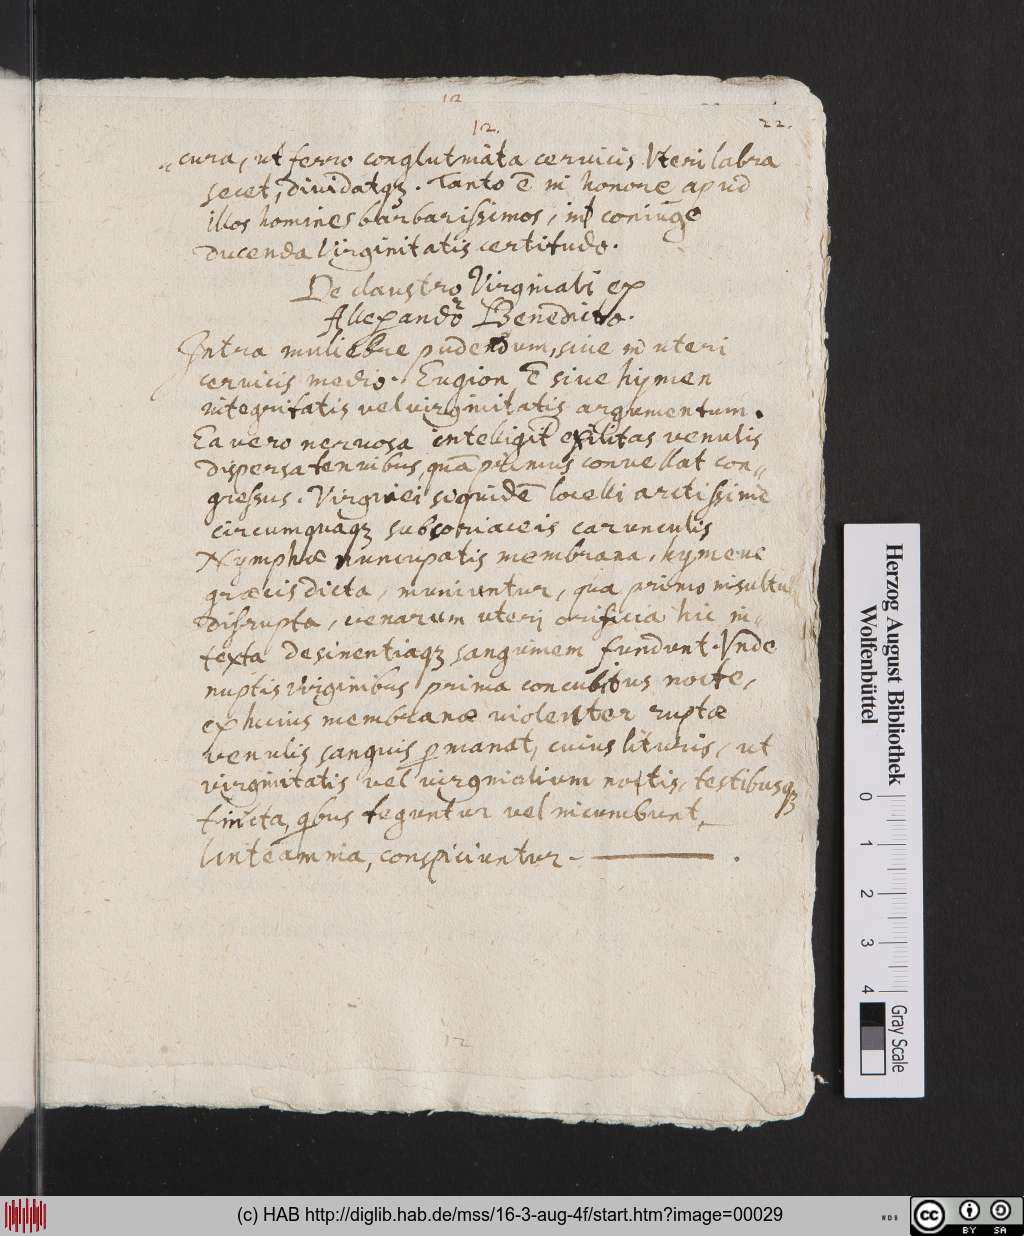 12
12.
22.
cura, ut ferro conglutinata cervicis Uteri labra
secet, dividatqȝ. Tanto ē in honore apud
illos homines barbarissimos, in coniuge
ducenda Virginitatis certitudo.
De claustro Virginali ex
Allexandro Benedicto.
Intra muliebre pudendum, siue in uteri
cervicis medio. Eugion ē siue hymen
integritatis vel virginitatis argumentum.
Ea vero nervosa intelligit exilitas venulis
dispersa tenuibus, quā primus convellat con„
gressus. Virginei siquidē locelli arctissimē
circumquaqȝ subcoriaceis carunculis
Nymphæ nuncupatis membrana, hymene
græcis dicta, muniuntur, qua primo insultu
disrupta, venarum uterj orificia hic in„
texta desinentiaqȝ sanguinem fundunt. Vnde
nuptis virginibus prima concubitus nocte,
ex huius membranæ violenter ruptæ
venulis sanguis pmanat, cuius lituris, ut
virginitatis vel virginalium noctis, testibusqȝ
tincta, qbus teguntur vel incumbunt,
linteamina, conspiciuntur - .
12
Herzog August Bibliothek
Wolfenbüttel
0 1 2 3 4
Gray Scale
(c) HAB http://diglib.hab.de/mss/16-3-aug-4f/start.htm?image=00029
WDB
cc BY SA